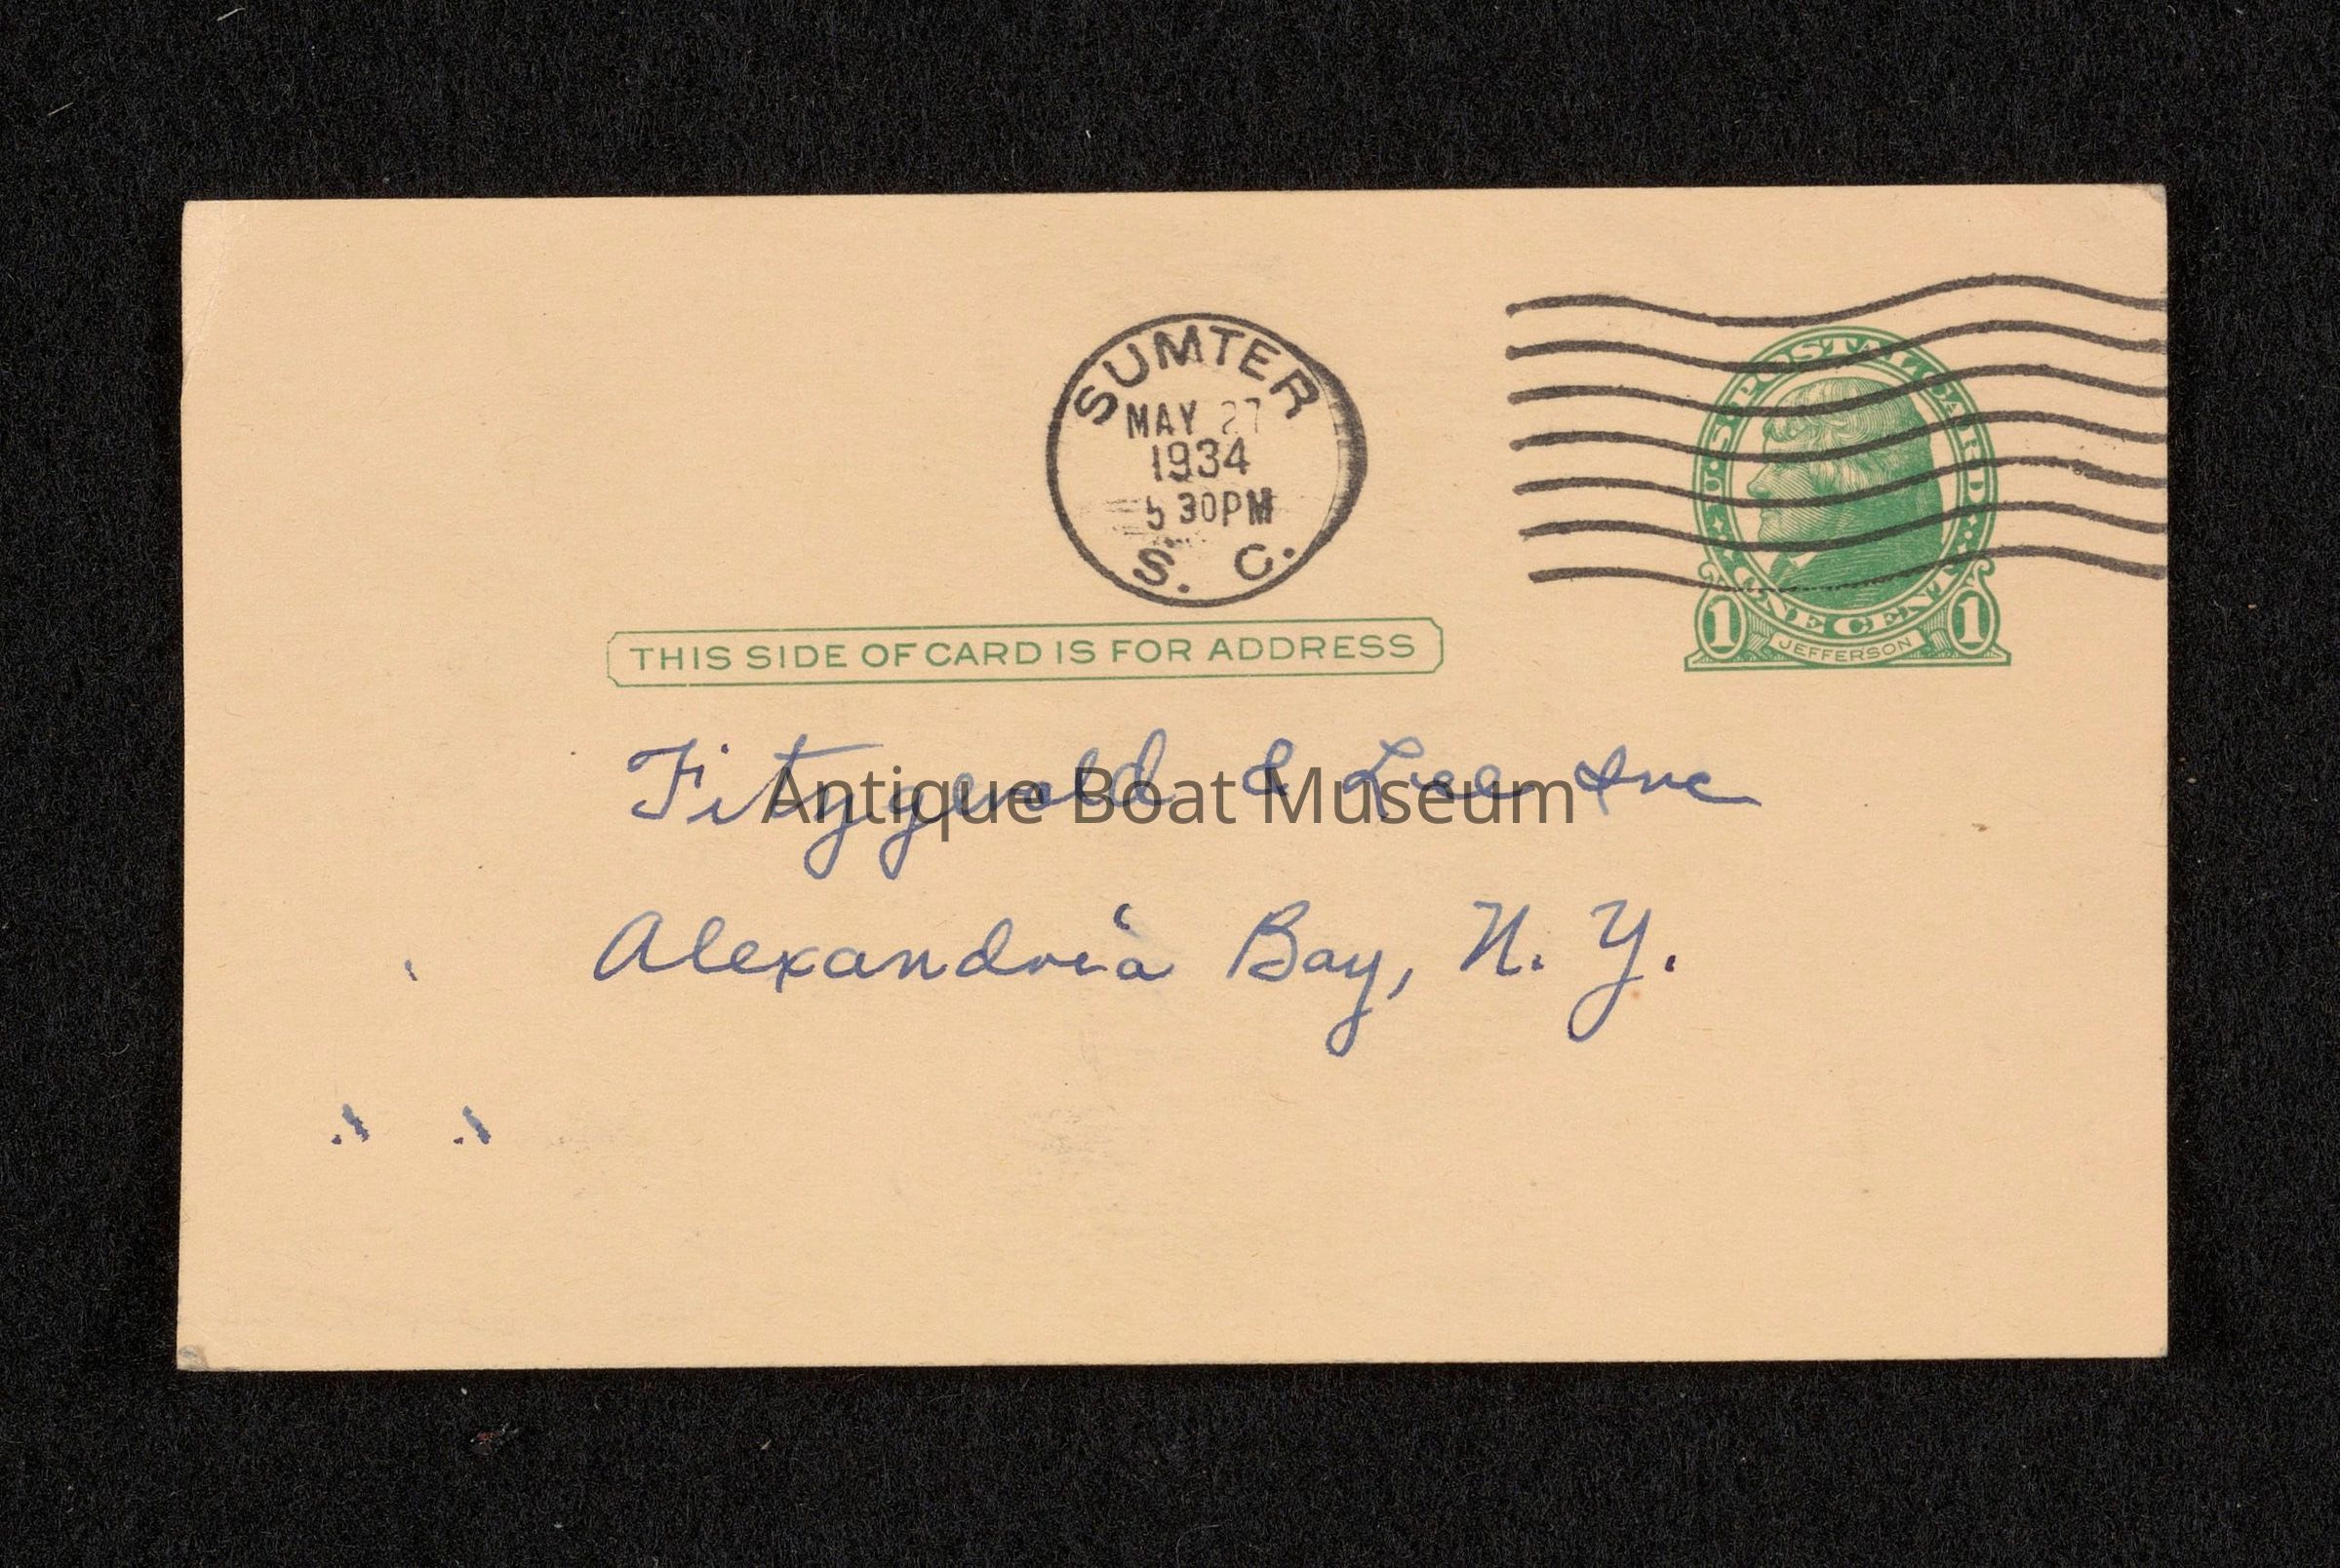 SUMTER
MAY 27
1934
5 30PM
S. C.
U·S·POSTAL CARD
ONE CENT
1 JEFFERSON 1
THIS SIDE OF CARD IS FOR ADDRESS
Fitzgerald & Lee Inc
Antique Boat Museum
Alexandria Bay, N. Y.